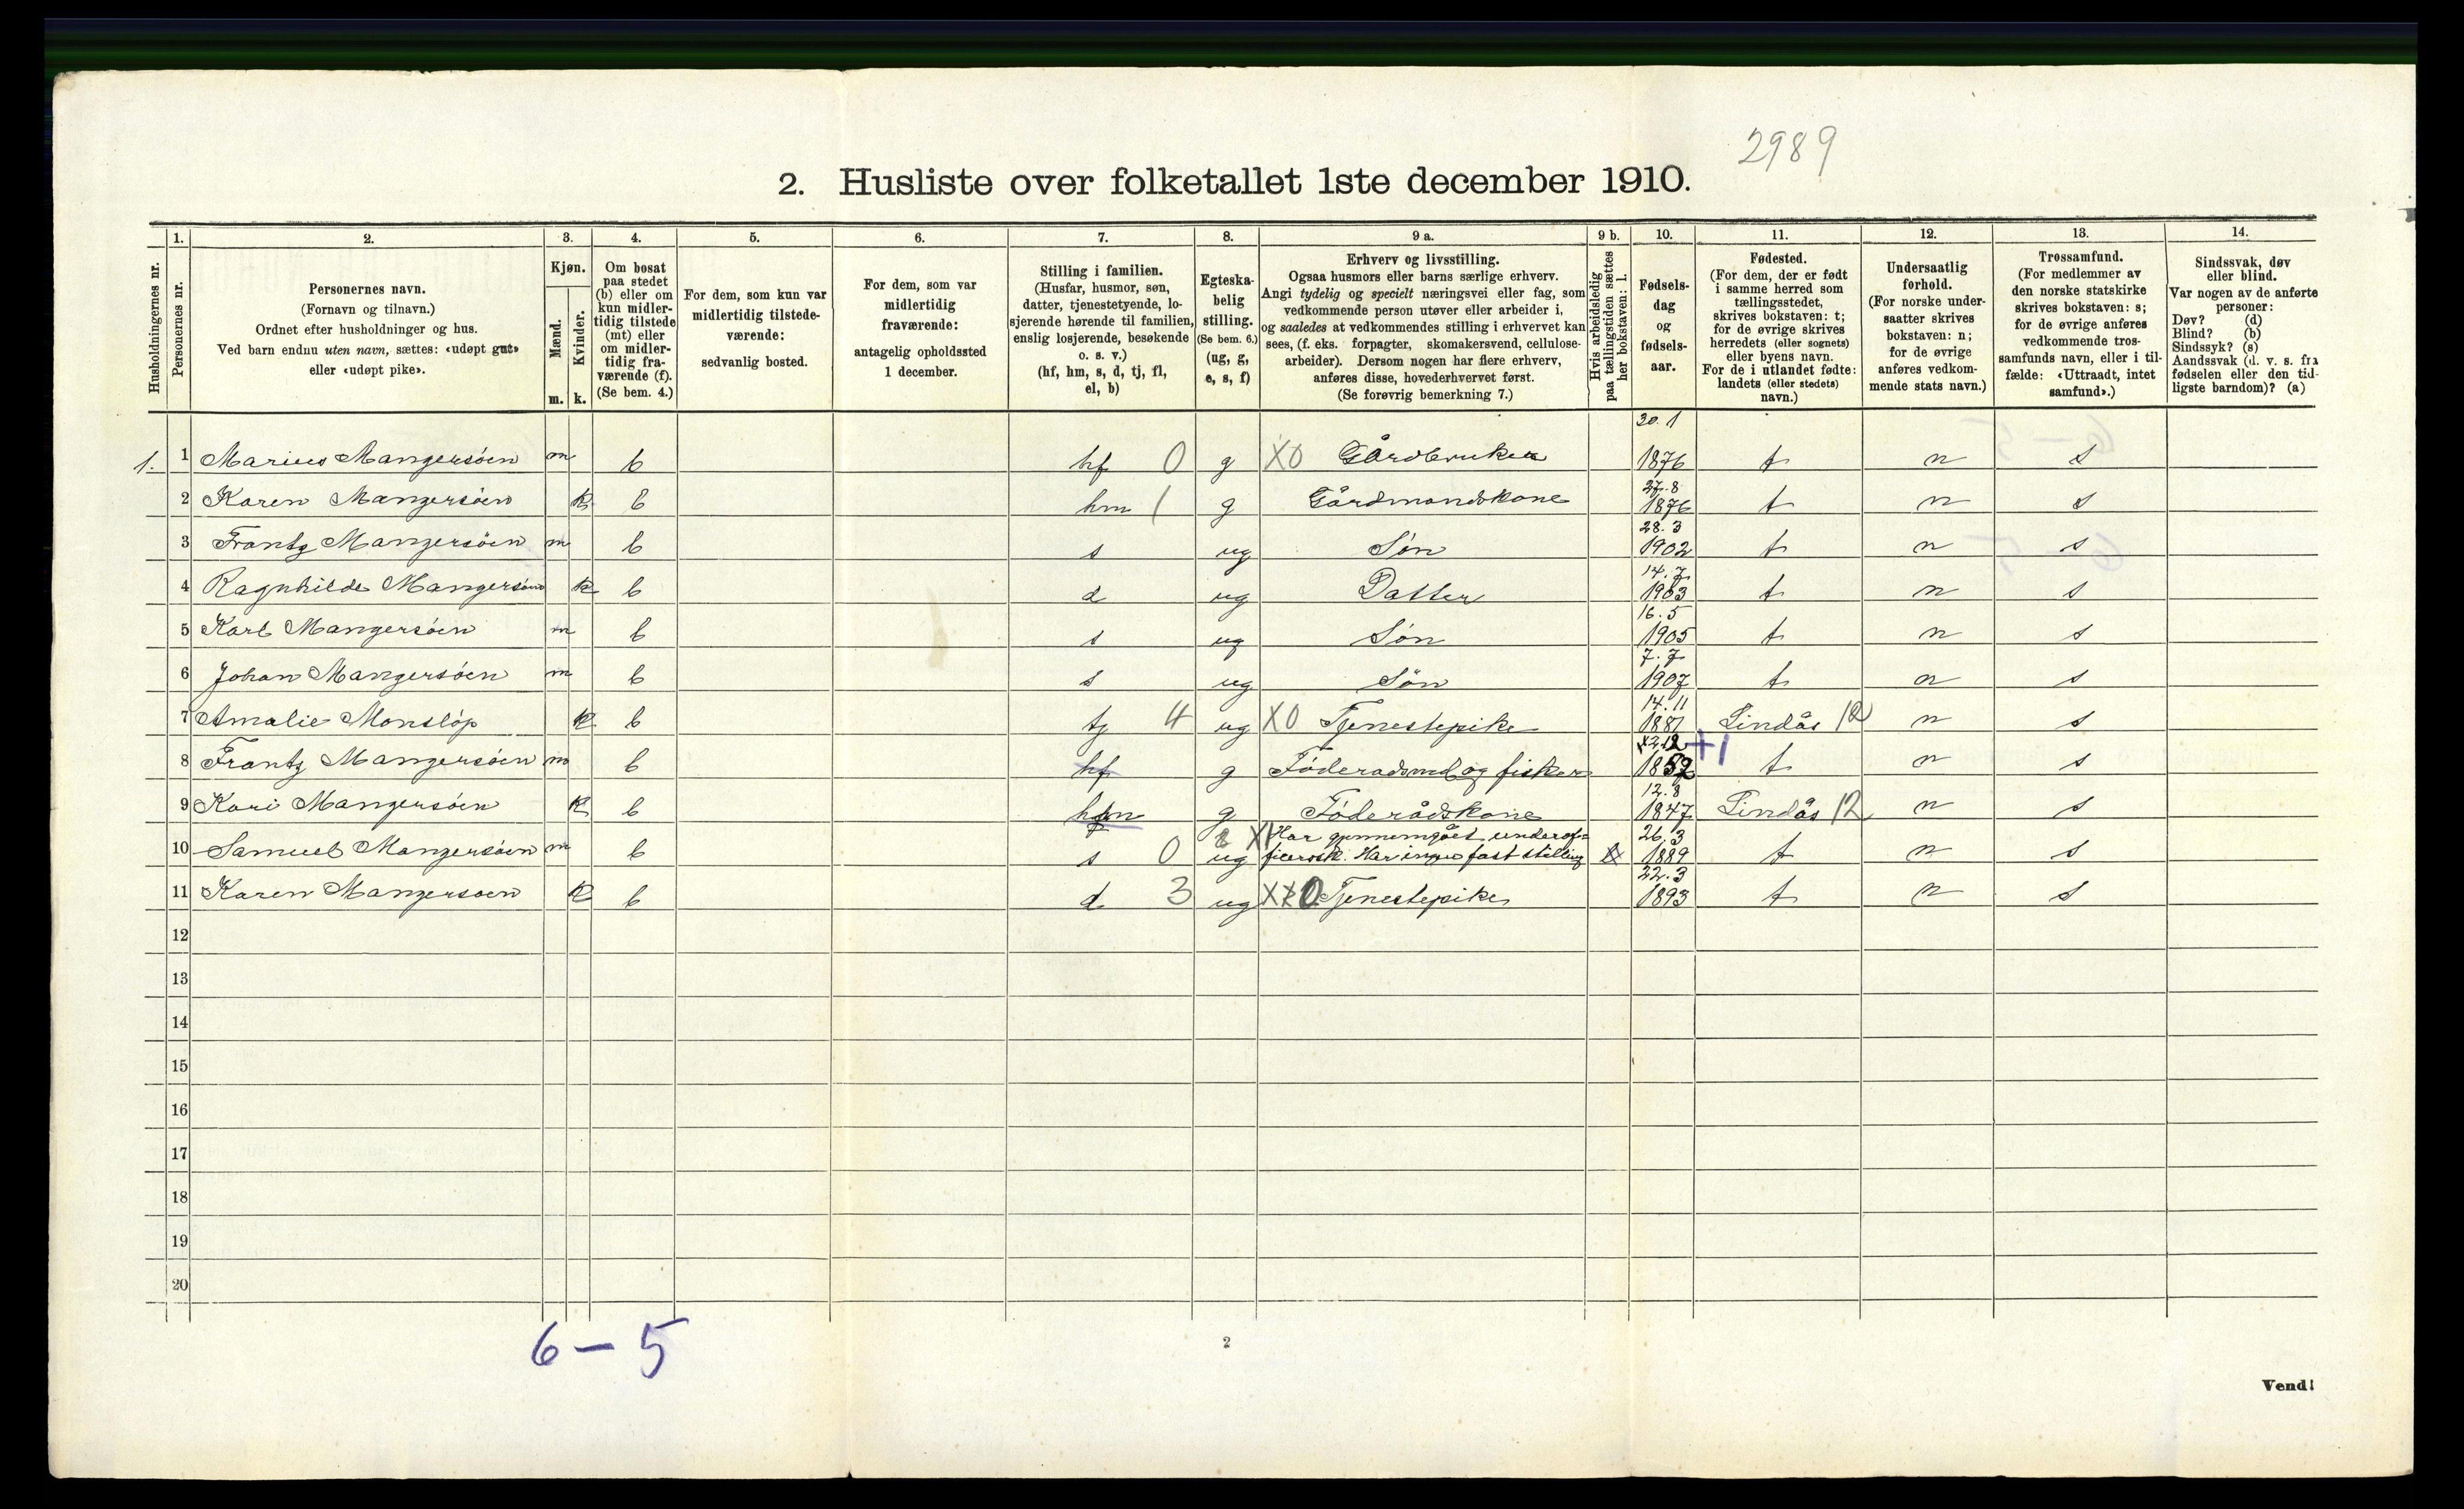 2989
2. Husliste over folketallet 1ste december 1910.
Husholdningernes nr.
1.
Personernes nr.
2.
Personernes navn.
(Fornavn og tilnavn.)
Ordnet efter husholdninger og hus.
Ved barn endnu uten navn, sættes: «udøpt gut»
eller «udøpt pike».
3.
Kjøn.
Mænd.
Kvinder.
m. k.
4.
Om bosat
paa stedet
(b) eller om
kun midler-
tidig tilstede
(mt) eller
om midler-
tidig fra-
værende (f).
(Se bem. 4.)
5.
For dem, som kun var
midlertidig tilstede-
værende:
sedvanlig bosted.
6.
For dem, som var
midlertidig
fraværende:
antagelig opholdssted
1 december.
7.
Stilling i familien.
(Husfar, husmor, søn,
datter, tjenestetyende, lo-
sjerende hørende til familien,
enslig losjerende, besøkende
o. s. v.)
(hf, hm, s, d, tj, fl,
el, b)
8.
Egteska-
belig
stilling.
(Se bem. 6.)
(ug, g,
e, s, f)
9 a.
Erhverv og livsstilling.
Ogsaa husmors eller barns særlige erhverv.
Angi tydelig og specielt næringsvei eller fag, som
vedkommende person utøver eller arbeider i,
og saaledes at vedkommendes stilling i erhvervet kan
sees, (f. eks. forpagter, skomakersvend, cellulose-
arbeider). Dersom nogen har flere erhverv,
anføres disse, hovederhvervet først.
(Se forøvrig bemerkning 7.)
9 b.
Hvis arbeidsledig
paa tællingstiden sættes
her bokstaven: l.
10.
Fødsels-
dag
og
fødsels-
aar.
11.
Fødested.
(For dem, der er født
i samme herred som
tællingsstedet,
skrives bokstaven: t;
for de øvrige skrives
herredets (eller sognets)
eller byens navn.
For de i utlandet fødte:
landets (eller stedets)
navn.)
12.
Undersaatlig
forhold.
(For norske under-
saatter skrives
bokstaven: n;
for de øvrige
anføres vedkom-
mende stats navn.)
13.
Trossamfund.
(For medlemmer av
den norske statskirke
skrives bokstaven: s;
for de øvrige anføres
vedkommende tros-
samfunds navn, eller i til-
fælde: «Uttraadt, intet
samfund».)
14.
Sindssvak, døv
eller blind.
Var nogen av de anførte
personer:
Døv? (d)
Blind? (b)
Sindssyk? (s)
Aandssvak (d. v. s. fra
fødselen eller den tid-
ligste barndom)? (a)
1. 1 Marius Mangersöen m b hf 0 g X0 Gårdbruker 30.1 1876 t n s
2 Karen Mangersöen k b hm 1 g Gårdmandskone 27.8 1876 t n s
3 Frantz Mangersöen m b s ug Sön 28.3 1902 t n s
4 Ragnhilde Mangersöen k b d ug Datter 14.7 1903 t n s
5 Karl Mangersöen m b s ug Sön 16.5 1905 t n s
6 Johan Mangersöen m b s ug Sön 7.7 1907 t n s
7 Amalie Monslöp k b tj 4 ug X0 Tjenestepike 14.11 1887 Lindås 12 n s
8 Frantz Mangersöen m b hf g Föderadsmd og fisker 1852 +1 t n s
9 Kari Mangersöen k b g Föderådskone 12.8 1847 Lindås 12 n s
10 Samuel Mangersöen m b s 0 ug X1 Har gjennemgået underof=
ficersk. Har ingen fast stilling 26.3 1889 t n s
11 Karen Mangersoen k b d 3 ug Tjenestepike 22.3 1893 t n s
12
13
14
15
16
17
18
19
20
6 – 5
2
Vend!